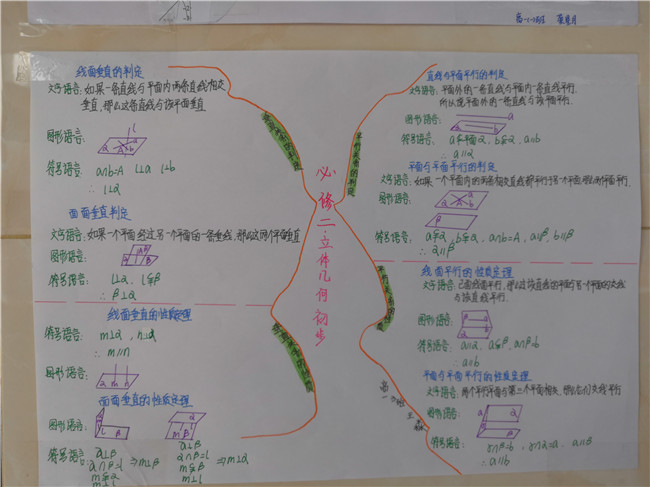 线面垂直的判定
文字语言: 如果一条直线与平面内两条直线相交
垂直,那么这条直线与该平面垂直
图形语言:
符号语言: a∩b=A l⊥a l⊥b
∴ l⊥α
面面垂直判定
文字语言: 如果一个平面经过另一个平面的一条垂线,那么这两个平面垂直
图形语言:
符号语言: l⊥α, l⊊β
∴ β⊥α
线面垂直的性质定理
符号语言: m⊥α,
∴ m//n
图形语言:
面面垂直的性质定理
图形语言:
符号语言: α⊥β
α∩β=l ⇒m⊥β
α⊥β
α∩β=l
m⊊β ⇒m⊥α
必修二立体几何初步
直线与平面平行的判定
文字语言: 平面外的一条直线与平面内一条直线平行,
图形语言:
符号语言:
∴ a//α
平面与平面平行的判定
文字语言: 如果一个平面内的两条相交直线都平行于另一个平面
图形语言:
符号语言: a⊊α, b⊊α, a∩b=A, a//β, b//β
∴ α//β
线面平行的性质定理
文字语言:
与该直线平行.
图形语言:
符号语言: a//α, a⊊β, α∩β=b
∴ a//b
平面与平面平行的性质定理
文字语言: 两个平行平面与第三个平面相交
图形语言:
符号语言: γ∩β=b, γ∩α=a, α//β
∴ a//b